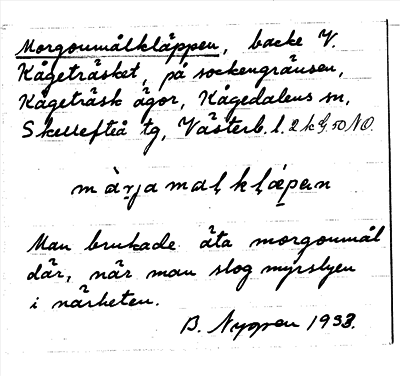 Morgonmålkläppen, backe V.
Kågeträsket, på sockengränsen,
Kågeträsk ägor, Kågedalens sn,
Skellefteå tg, Västerb. l. 2 k G. 50 NO.
màrjamaḷkḷæpen
Man brukade äta morgonmål
där, när man slog myrslyen
i närheten.
B. Nygren 1938.